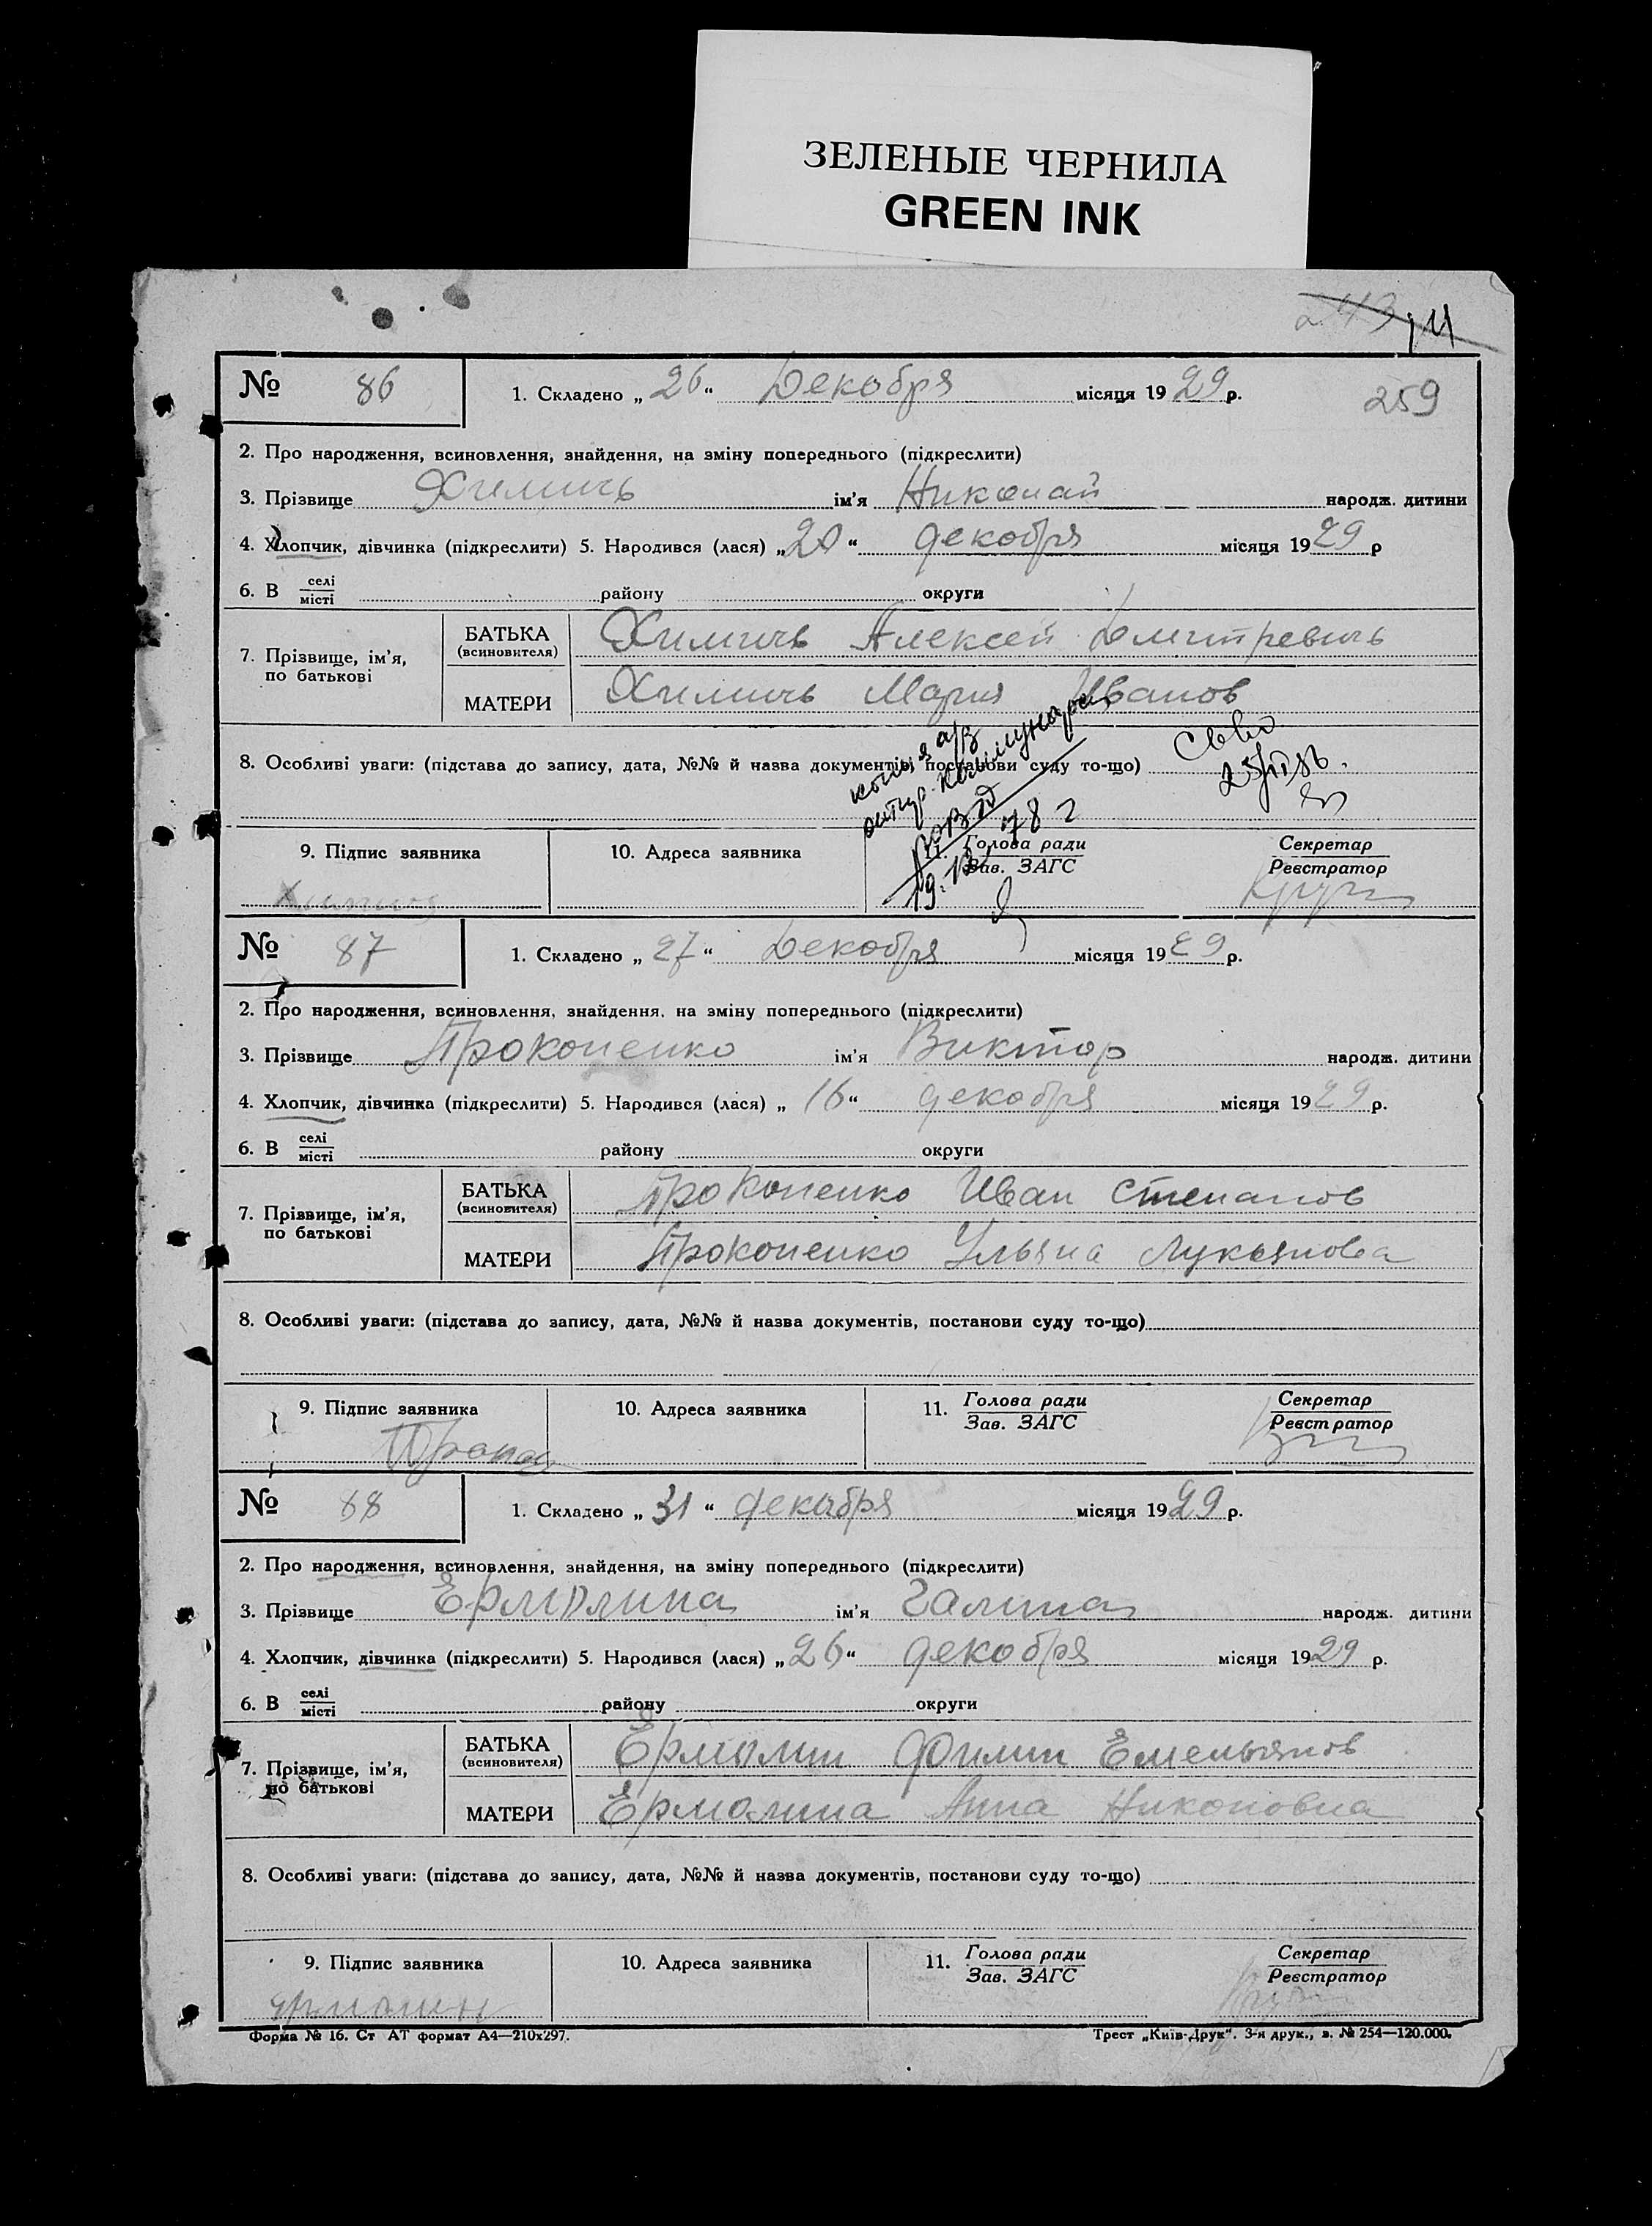 ЗЕЛЕНЫЕ ЧЕРНИЛА
GREEN INK
243
259
№ 86 1. Складено „ 26 “ Декабря місяця 1929 р.
2. Про народження, всиновлення, знайдення, на зміну попереднього (підкреслити)
3. Прізвище Химичь ім'я Николай народж. дитини
4. Хлопчик, дівчинка (підкреслити) 5. Народився (лася) „ 20 “ декобря місяця 1929 р
6. В селі/місті района округи
7. Прізвище, ім'я, по батькові
БАТЬКА (всиновителя) Химичь Алексей Дмитревичь
МАТЕРИ Химичь Мария Иванов
8. Особливі уваги: (підстава до запису, дата, №№ й назва документів, постанови суду то-що)
копия а/з
19. 78 г
9. Підпис заявника 10. Адреса заявника 11. Голова ради/Зав. ЗАГС Секретар/Реєстратор
№ 87 1. Складено „ 27 “ Декобря місяця 1929 р.
2. Про народження, всиновлення, знайдення, на зміну попереднього (підкреслити)
3. Прізвище Прокопенко ім'я Виктор народж. дитини
4. Хлопчик, дівчинка (підкреслити) 5. Народився (лася) „ 16 “ декобря місяця 1929 р.
6. В селі/місті району округи
7. Прізвище, ім'я, по батькові
БАТЬКА (всиновителя) Прокопенко Иван Степанов
МАТЕРИ Прокопенко Ульяна Лукьянова
8. Особливі уваги: (підстава до запису, дата, №№ й назва документів, постанови суду то-що)
9. Підпис заявника 10. Адреса заявника 11. Голова ради/Зав. ЗАГС Секретар/Реєстратор
№ 88 1. Складено „ 31 “ декабря місяця 1929 р.
2. Про народження, всиновлення, знайдення, на зміну попереднього (підкреслити)
3. Прізвище Ермолина ім'я Галина народж. дитини
4. Хлопчик, дівчинка (підкреслити) 5. Народився (лася) „ 26 “ декобря місяця 1929 р.
6. В селі/місті району округи
7. Прізвище, ім'я, по батькові
БАТЬКА (всиновителя) Ермолин Филип Емельянов
МАТЕРИ Ермолина Анна Никоновна
8. Особливі уваги: (підстава до запису, дата, №№ й назва документів, постанови суду то-що)
9. Підпис заявника 10. Адреса заявника 11. Голова ради/Зав. ЗАГС Секретар/Реєстратор
Ермолин
Форма № 16. Ст АТ формат А4—210х297. Трест „Київ-Друк“. 3-я друк., з. № 254—120.000.